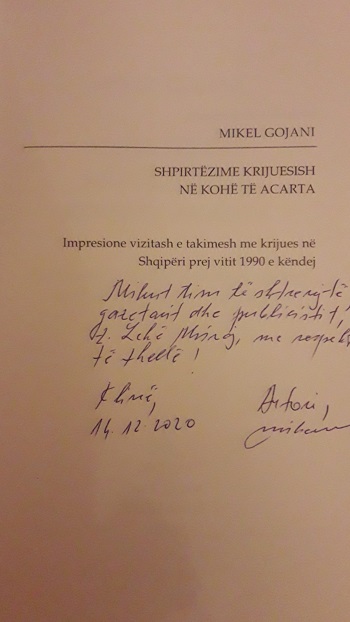 MIKEL GOJANI
SHPIRTËZIME KRIJUESISH
NË KOHË TË ACARTA
Impresione vizitash e takimesh me krijues në
Shqipëri prej vitit 1990 e këndej
Mikut tim të shtrenjtë
gazetarit dhe publicistit,
z. Lekë Mrijaj, me respekt
të thellë!
Klinë,
Autori,
14.12.2020